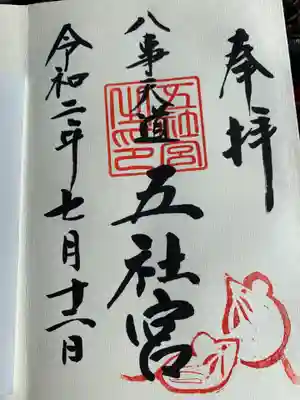 奉拝
八事天道 五社宮
五社宮
之印
令和二年七月十二日